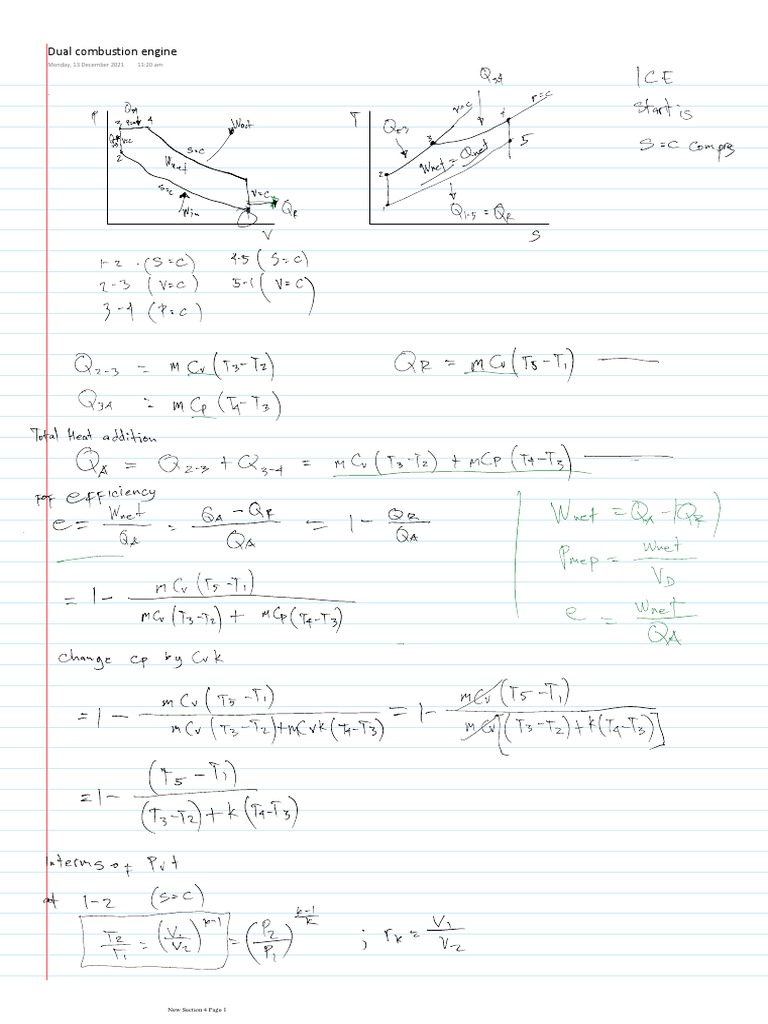 Dual combustion engine
Monday, 13 December 2021 11:20 am
ICE
start is
S=C comprs
P
3 P=C 4
V=C
2
S=C
Wnet
Wout
S=C
Win
V=C
QR
V
T
Q2-3
V=C
Q3-4
P=C
4
3
5
2
1
Wnet = Qnet
Q1-5 = QR
S
1-2 (S=C) 4-5 (S=C)
2-3 (V=C) 5-1 (V=C)
3-4 (P=C)
Q2-3 = mCv(T3-T2) QR = mCv(T5-T1)
Q34 = mCp(T4-T3)
Total Heat addition
QA = Q2-3 + Q3-4 = mCv(T3-T2) + mCp(T4-T3)
for efficiency
e = Wnet/QA = (QA - QR)/QA = 1 - QR/QA
Wnet = QA - |QR|
Pmep = Wnet/VD
e = Wnet/QA
= 1 - mCv(T5-T1) / mCv(T3-T2) + mCp(T4-T3)
change cp by Cvk
= 1 - mCv(T5-T1) / mCv(T3-T2)+mCvk(T4-T3) = 1 - mCv(T5-T1) / mCv[(T3-T2)+k(T4-T3)]
= 1 - (T5-T1) / (T3-T2)+k(T4-T3)
Interms of Pvt
at 1-2 (S=C)
T2/T1 = (V1/V2)^k-1 = (P2/P1)^k-1/k ; rk = V1/V2
New Section 4 Page 1